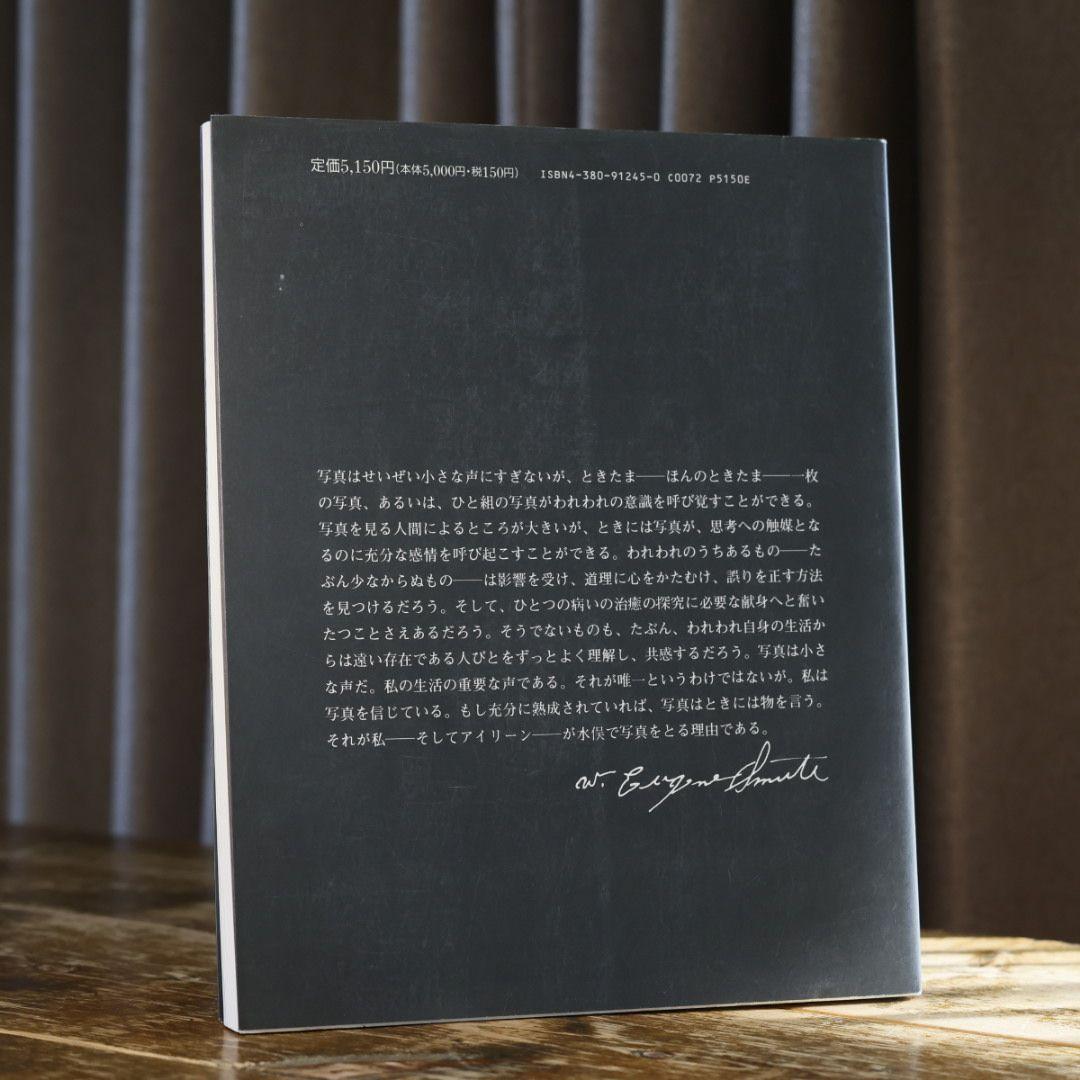 定価5,150円(本体5,000円・税150円) ISBN4-380-91245-0 C0072 P5150E
写真はせいぜい小さな声にすぎないが、ときたま――ほんのときたま――一枚
の写真、あるいは、ひと組の写真がわれわれの意識を呼び覚すことができる。
写真を見る人間によるところが大きいが、ときには写真が、思考への触媒とな
るのに充分な感情を呼び起こすことができる。われわれのうちあるもの――た
ぶん少なからぬもの――は影響を受け、道理に心をかたむけ、誤りを正す方法
を見つけるだろう。そして、ひとつの病いの治癒の探究に必要な献身へと奮い
たつことさえあるだろう。そうでないものも、たぶん、われわれ自身の生活か
らは遠い存在である人びとをずっとよく理解し、共感するだろう。写真は小さ
な声だ。私の生活の重要な声である。それが唯一というわけではないが。私は
写真を信じている。もし充分に熟成されていれば、写真はときには物を言う。
それが私――そしてアイリーン――が水俣で写真をとる理由である。
W. Eugene Smith